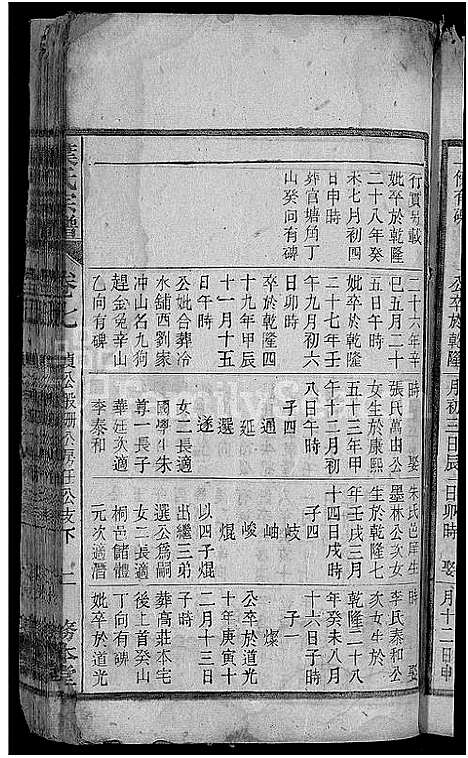 行實另載
妣卒於乾隆
二十八年癸
未七月初四
日申時
葬官塘角丁
山癸向有碑
二十六年辛
巳五月二十
五日午時
妣卒於乾隆
二十七年壬
午九月初六
日卯時
卒於乾隆四
十九年甲辰
十一月十五
日午時
公妣合葬冷
水鋪西劉家
冲山名九狗
趕金兔辛山
乙向有碑
時 娶
張氏萬山公
女生於康熙
五十三年甲
午十二月初
八日午時
子四
通
延
選
遂
女二長適
國學生朱
尊一長子
華廷次適
李泰和
時 娶
朱氏邑庠生
墨林公次女
生於乾隆七
年壬戌三月
十四日戌時
子四
岐
岫
峻
焜
以四子焜
出繼三弟
選公為嗣
女二長適
桐邑儲體
元次適潛
時 娶
李氏泰和公
次女生於
乾隆二十八
年癸未八月
十六日子時
子一
燦
公卒於道光
十年庚寅十
二月十三日
子時
葬高莊本宅
後上首癸山
丁向有碑
妣卒於道光
葉氏宗譜
卷七
下 二
務本堂
公卒於乾隆
月初三日辰
日卯時 娶
月十二日申